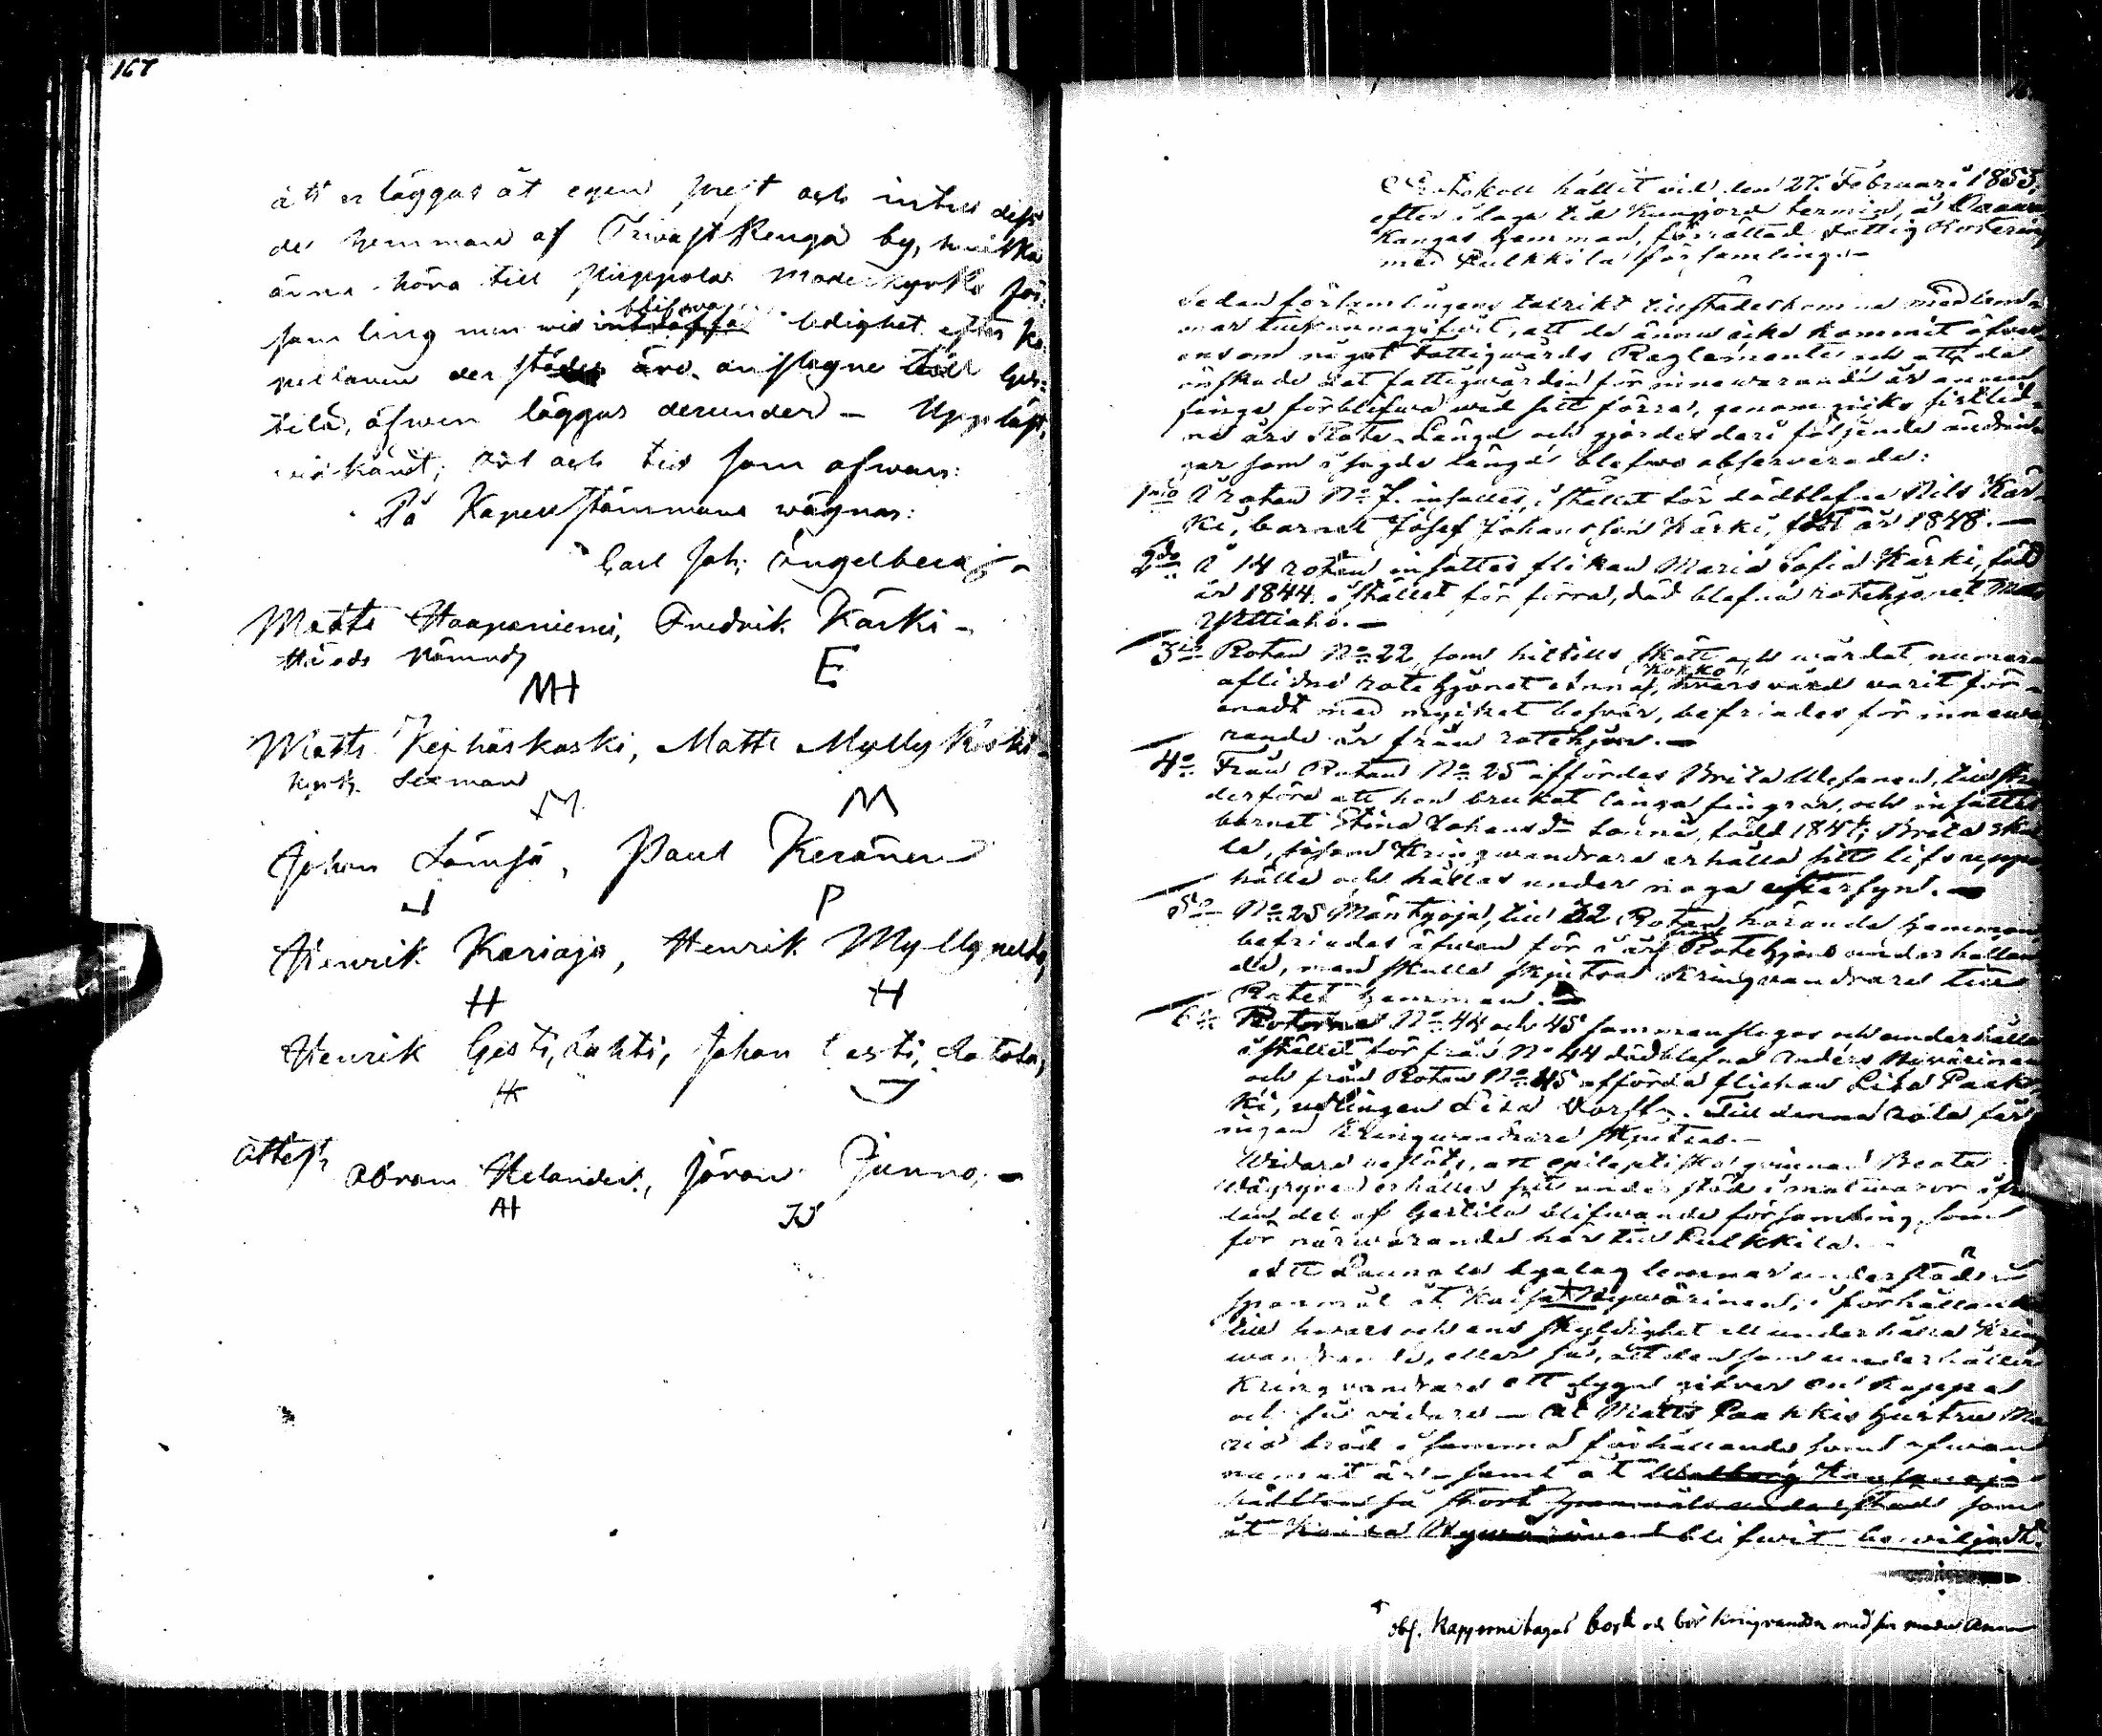 167
att erläggas åt egen prest och intill dess
de hemman af Trivast Kenga by, hvilka
änna höra till Piippola Moderkyrko för:
samling men vid blifwande ledighet efter Ka:
pellanen der städes äro anslagne till Ges:
tilä, äfwen läggas derunder — Uppläst,
widkändt; Ort och tid som ofwan:
På Kapellstämmans wägnar:
Carl Joh: Engelberg.
Matts Haapaniemi, Fredrik Kärki —
Härads Nämnd
MH E
Matts Kejhäskoski, Matts Myllykoski —
Kyrk. Sexman
M M
Johan Lämsä, Paul Keränen
P
Henrik Kariaja, Henrik Mylly
H H
Henrik Gesti, Lahti, Johan Gesti, Latola,
H J
Attest
Abram Helander, Jöran Junno. —
AH JJ
Protokoll hållit vid den 27. Februari 1853,
efter i laga tid kungjord termin, å
Kangas hemman, förrättad Fattig Rotering
med Pulkkila församling. —
Sedan församlingens talrikt tillstädeskomne medlem-
mar tillkännagifvit, att de ännu icke kommit öfver
ens om något Fattigwårds Reglemente och att de
önskade at fattigwården för innewarande år ännu
finge förblifwa wid sitt förra, genomgicks sistlid-
ne års Rote-Längd och gjordes deri följande ändrin-
gar som i sagde längd blefwo observerade:
1mo Å roten No 7. insattes, i stället för dödblefne Nils Kär-
ki, barnet Josef Johansson Kärki, född år 1848. —
2do Å 14 roten insattes flickan Maria Sofia Kärki, född
år 1844. i stället för förra, död blefna rotehjonet
3o Roten No 22, som hittills skött och wårdat numera
aflidne rotehjonet Anna Korko, hvars vård varit för-
enadt med mycket besvär, befriades för innewa
rande år från rotehjon. —
4o Från Roten No 25 affördes Brita Ulefanen,
derföre att hon brukat långa fingrar, och insattes
barnet Stina Johansdr född 1847; Brita skul
le, såsom Kringwandrare erhålla sitt lifsuppe
hälle och hållas under noga eftersyn. —
5o No 25 Mäntyoja, till 32 Roten hörande hemman
befriades äfwen för i år från Rotehjons underhållan
de, men skulle skjutsa Kringvandrare till
Rotet hemman. —
6o Roterne No 44 och 45 sammanslogos och underhålla
i stället för från No 44 dödblefne Anders Hywärinen
och från Roten No 45 afförda flickan Lisa Paak-
ki, ynglingen Till denna rote får
ingen Kringwandrare skjutsas. —
Widare beslöts, att epileptiska qvinnan Beata
erhåller sitt understöd i matwaror ifrån
den del af Gestilä blifwande församling, som
för närwarande hör till Pulkkila. —
Att byalag lemnar understöd i
spannmål åt Kaisa Hywärinen, i förhållande
till hwars och ens skyldighet att underhålla Kring
wandrande, eller så, att den som underhåller
Kringvandrare ett dygn gifver en kappe
och så vidare — åt Matts Paakkis hustru Ma
ria bröd i samma förhållande som ofwan
nämnt är — samt åt Walborg
hälften så stort spannmåls understöd som
åt Kaisa Hywärinen blifwit bewiljadt.
Obs. Kapporne tagas bort och bör kringvandra med sin moder Anna